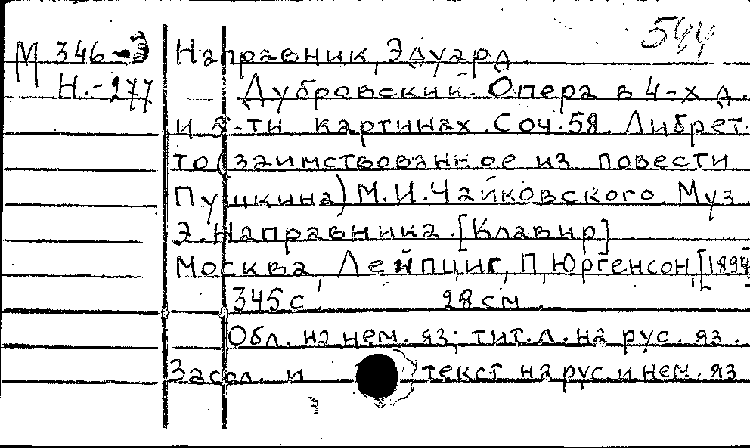 544
М 346-3 Направник, Эдуард.
Н.-277 Дубровский. Опера в 4-х д.
и 5-ти картинах. Соч. 58. Либрет-
то (заимствованное из повести
Пушкина) М.И.Чайковского Муз
Э.Направника. [Клавир]
Москва, Лейпциг, П.Юргенсон, [1894]
345с. 28см.
Обл. на нем. яз; тит.л. на рус. яз.
Загл. и текст на рус. и нем. яз